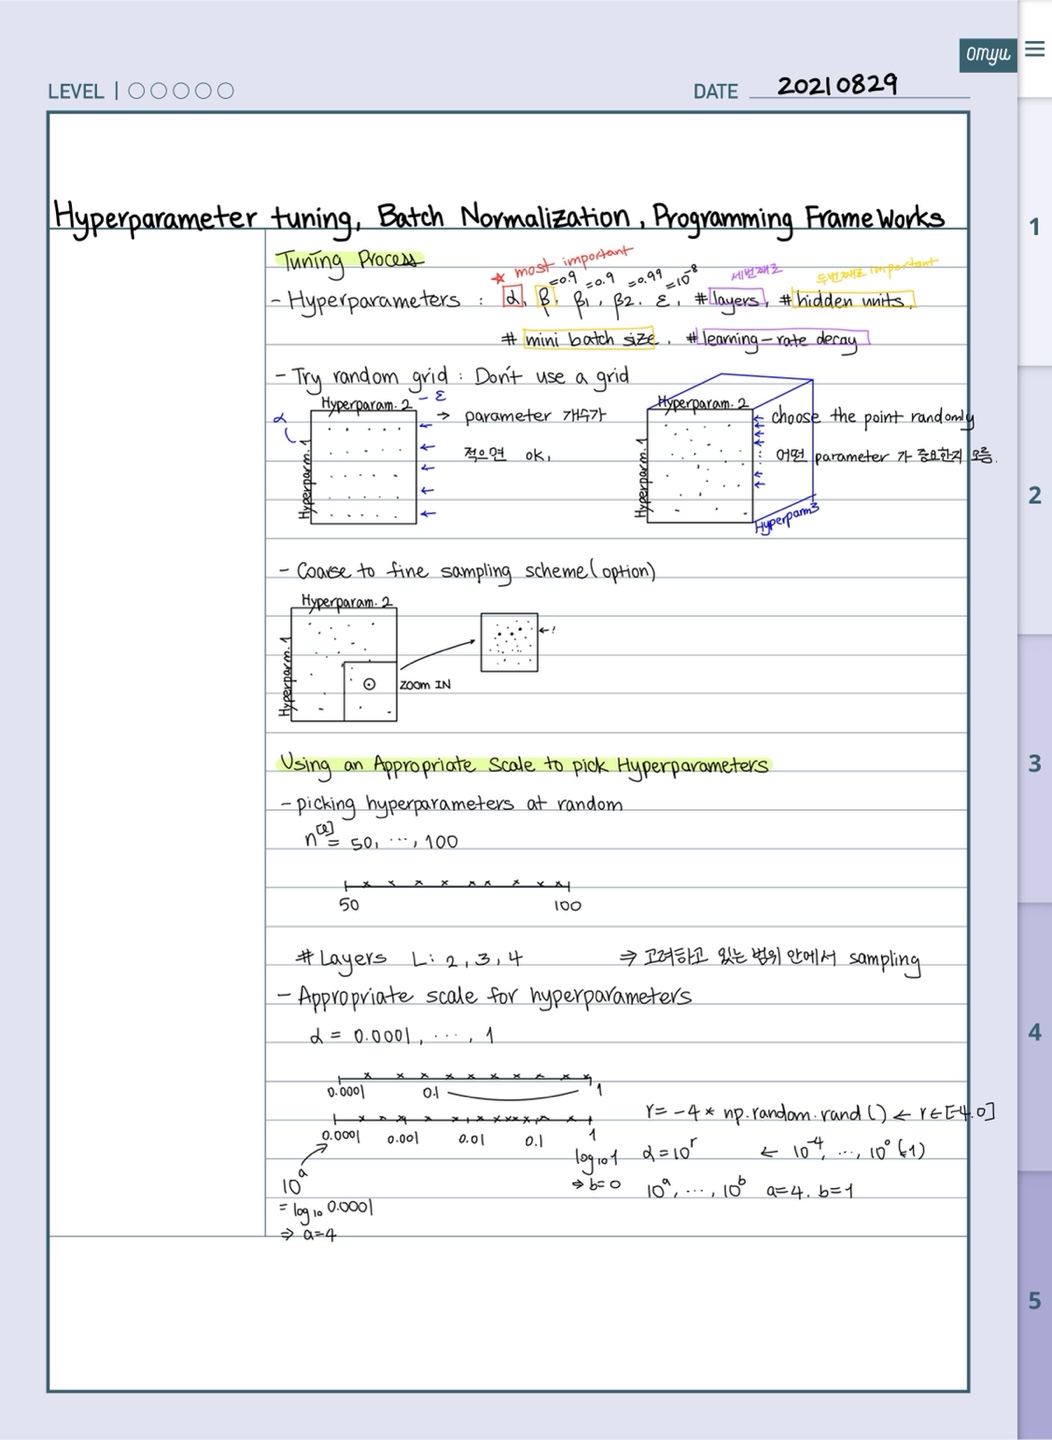 omyu
LEVEL
DATE 20210829
Hyperparameter tuning, Batch Normalization, Programming FrameWorks
Tuning Process
★ most important
=0.9 =0.9 =0.99 =10⁻⁸
세번째로
두번째로 important
- Hyperparameters : α, β, β1, β2, ε, #layers, #hidden units,
# mini batch size, #learning-rate decay
- Try random grid : Don't use a grid
Hyperparam. 2 - ε
α
Hyperparm. 1
→ parameter 개수가
적으면 OK,
Hyperparam. 2
Hyperparm. 1
Hyperparm3
choose the point randomly
어떤 parameter 가 중요한지 모름.
- Coarse to fine sampling scheme (option)
Hyperparam. 2
Hyperparm. 1
ZOOM IN
←!
Using an Appropriate Scale to pick Hyperparameters
- picking hyperparameters at random
n[l] = 50, ..., 100
50 100
# Layers L: 2, 3, 4 ⇒ 고려하고 있는 범위 안에서 sampling
- Appropriate scale for hyperparameters
α = 0.0001, ..., 1
0.0001 0.1 1
0.0001 0.001 0.01 0.1 1
r = -4 * np.random.rand() ← r∈[-4.0]
log₁₀1
⇒ b=0
α = 10ʳ ← 10⁻⁴, ..., 10⁰ (-1)
10ᵃ, ..., 10ᵇ a=4. b=1
10ᵃ
= log₁₀ 0.0001
⇒ a=4
1
2
3
4
5